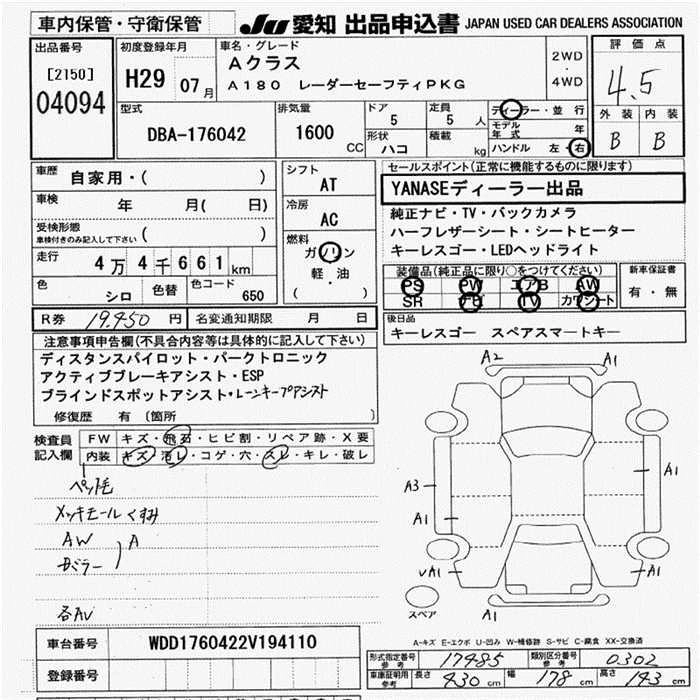 車内保管・守衛保管
JU 愛知 出品申込書 JAPAN USED CAR DEALERS ASSOCIATION
出品番号
[2150]
04094
初度登録年月
H29 07月
車名・グレード
Aクラス
A180 レーダーセーフティPKG
2WD
・
4WD
評価点
4.5
外装 内装
B B
型式
DBA-176042
排気量
1600 CC
ドア
5
定員
5 人
形状
ハコ
積載
kg
ディーラー・並行
モデル年式 年
ハンドル 左・右
車歴
自家用・( )
車検
年 月( 日)
受検形態
車検付きのみ記入して下さい ( )
走行
4万4千661km
色
シロ
色替
色コード
650
シフト
AT
冷房
AC
燃料
ガソリン
軽・油
( )
セールスポイント(正常に機能するものに限ります)
YANASEディーラー出品
純正ナビ・TV・バックカメラ
ハーフレザーシート・シートヒーター
キーレスゴー・LEDヘッドライト
装備品(純正品に限り○をつけてください)
PS PW エアB AW
SR ナビ TV カワシート
新車保証書
有・無
R券 19,450 円 名変通知期限 月 日
後日品
キーレスゴー スペアスマートキー
注意事項申告欄(不具合内容等は具体的に記入して下さい)
ディスタンスパイロット・パークトロニック
アクティブブレーキアシスト・ESP
ブラインドスポットアシスト・レーンキープアシスト
修復歴 有 〔箇所 〕
検査員
記入欄
FW キズ・飛石・ヒビ割・リペア跡・X要
内装 キズ・汚レ・コゲ・穴・スレ・キレ・破レ
ペット毛
メッキモールくすみ
AW
ミラー
A
各AV
A2 A1
A3 A1
A1
A1 A1
スペア
A1
A-キズ E-エクボ U-凹み W-補修跡 S-サビ C-腐食 XX-交換済
車台番号 WDD1760422V194110
登録番号
形式指定番号
参考
17485
類別区分番号
参考
0302
車庫証明用
参考
長さ 430 cm 幅 178 cm 高さ 143 cm